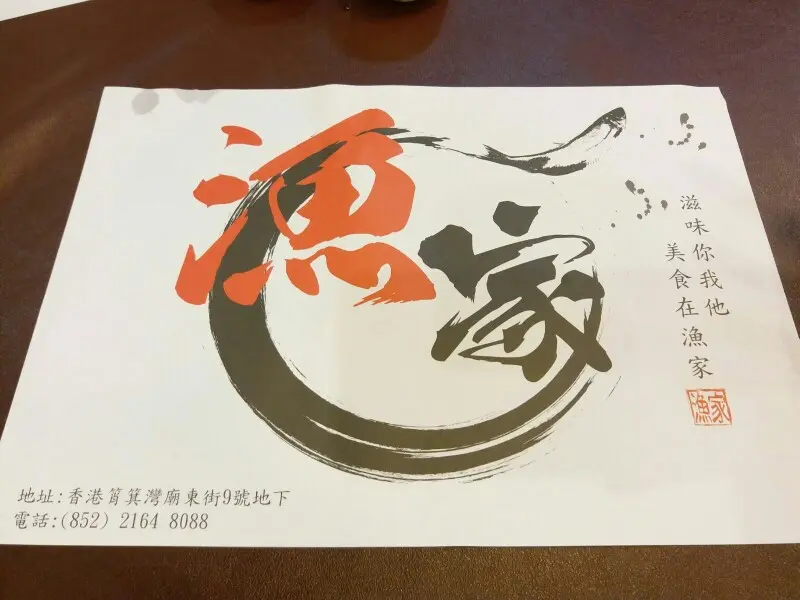 漁家
滋味你我他
美食在漁家
漁家
地址:香港筲箕灣廟東街9號地下
電話:(852) 2164 8088